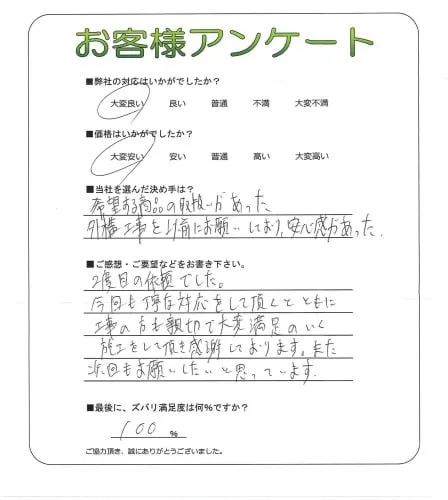 お客様アンケート
■弊社の対応はいかがでしたか?
大変良い 良い 普通 不満 大変不満
■価格はいかがでしたか?
大変安い 安い 普通 高い 大変高い
■当社を選んだ決め手は?
希望する商品の取扱いがあった。
外構工事を以前にお願いしており、安心感があった。
■ご感想・ご要望などをお書き下さい。
2度目の依頼でした。
今回も丁寧な対応をして頂くとともに
工事の方も親切で大変満足のいく
施工をして頂き感謝しております。また
次回もお願いしたいと思っています。
■最後に、ズバリ満足度は何%ですか?
100 %
ご協力頂き、誠にありがとうございました。